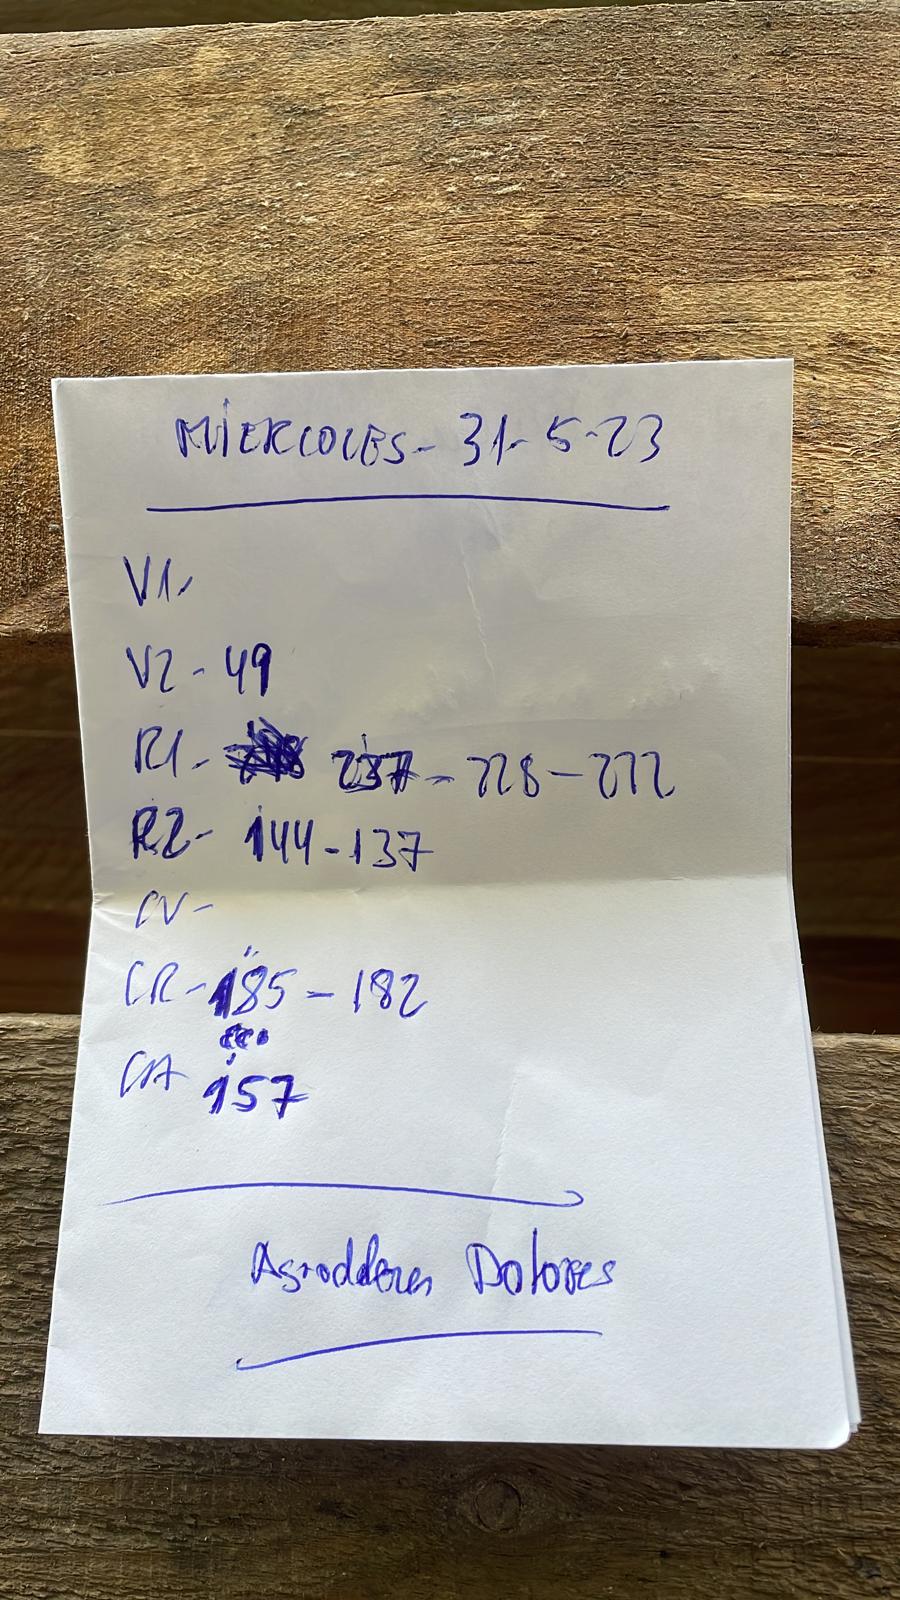 MIERCOLES - 31-5-23
V1-
V2 - 49
R1 - 237 - 228 - 222
R2 - 144 - 137
CV -
CR - 185 - 182
CA 157
Dolores